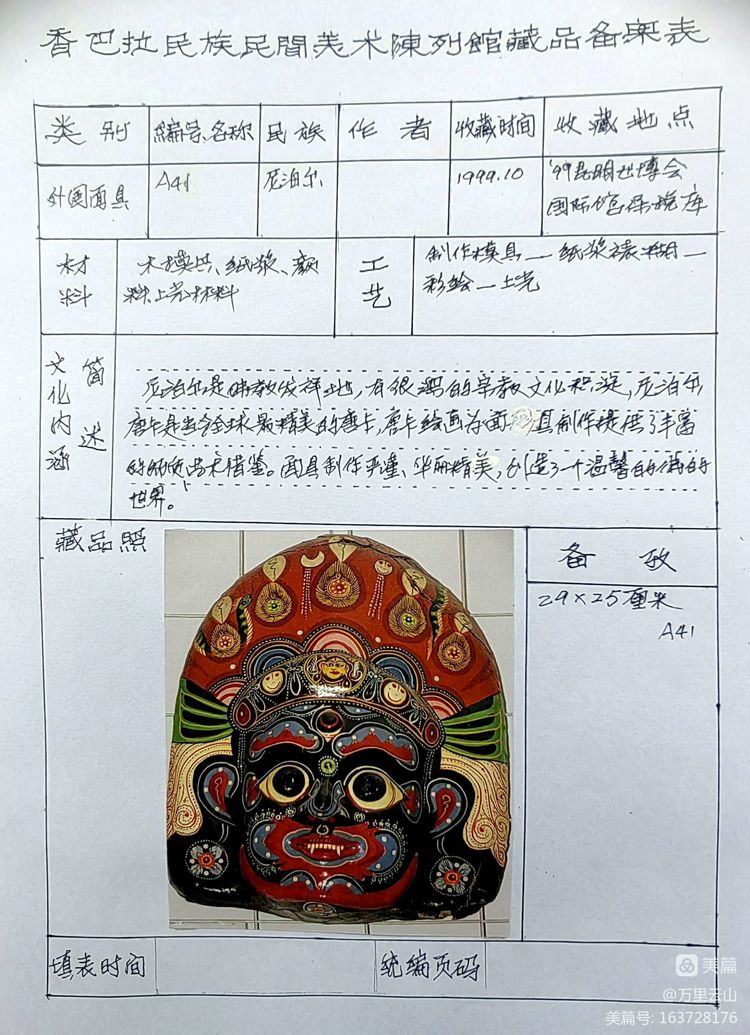 香巴拉民族民間美术陳列館藏品备案表
类别 编号、名称 民族 作者 收藏时间 收藏地点
外国面具 A41 尼泊尔 1999.10 '99昆明世博会
国际馆保税库
材料 木模具、纸浆、颜
料、上光材料
工艺 制作模具—纸浆裱糊—
彩绘—上光
文化内涵简述
尼泊尔是佛教发祥地,有很深的宗教文化积淀,尼泊尔
唐卡是当今全球最精美的唐卡,唐卡绘画为面具制作提供了丰富
的艺术借鉴。面具制作严谨、华丽精美,创造了一个温馨的佛的
世界。
藏品照 备考
29×25厘米
A41
填表时间 统编页码
美篇
@万里云山
美篇号: 163728176